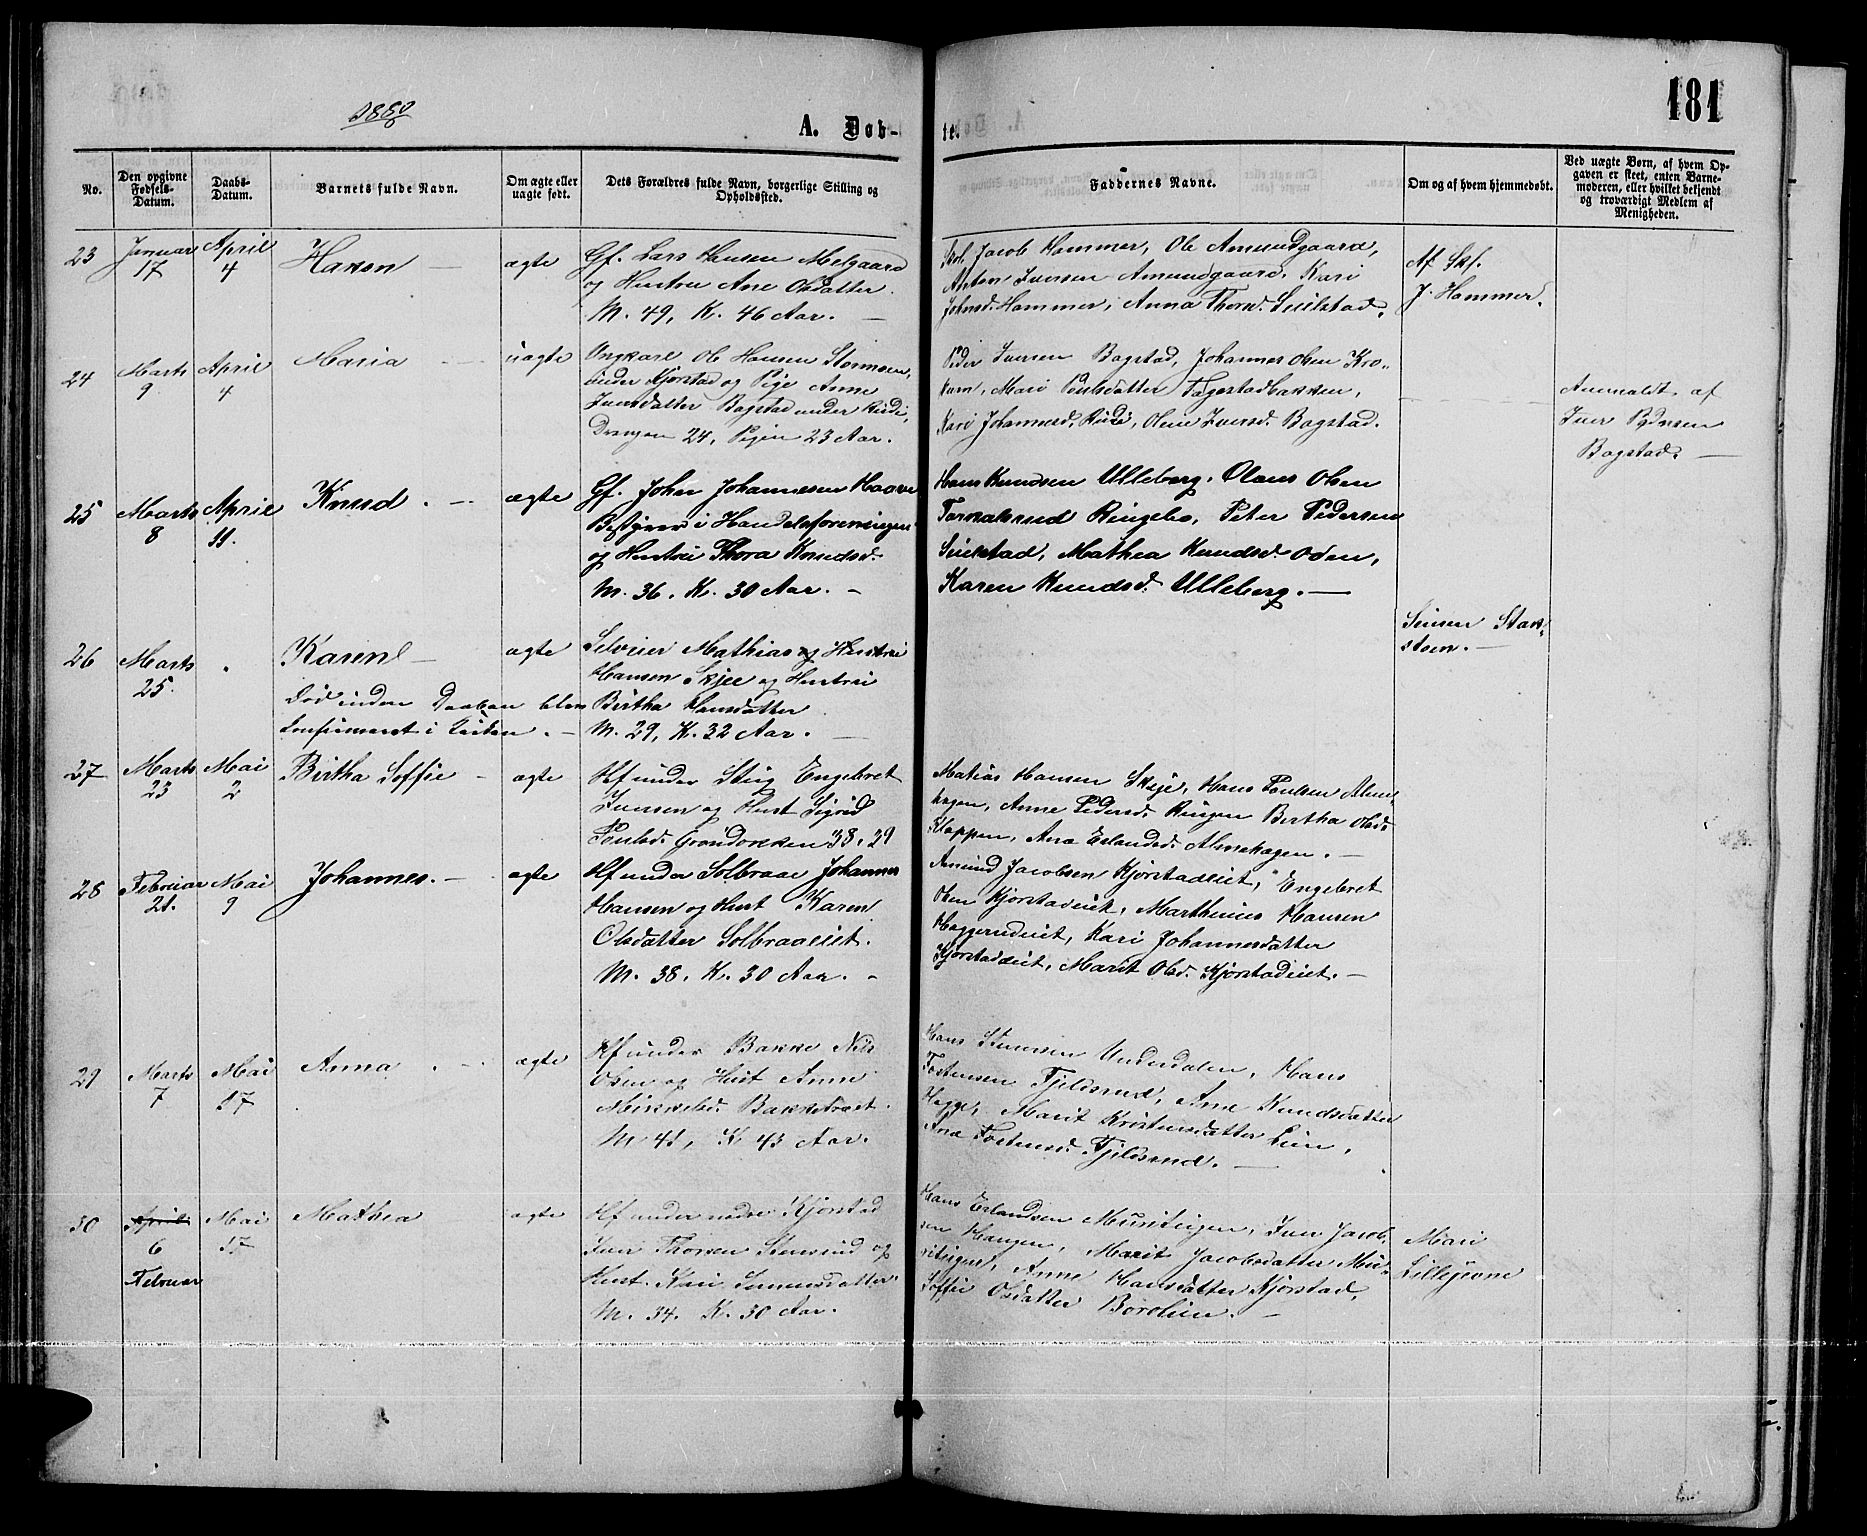 1880
A. Døb-
te.
181
No.
Den opgivne Fødsels-Datum.
Daabs-Datum.
Barnets fulde Navn.
Om ægte eller uægte født.
Dets Forældres fulde Navn, borgerlige Stilling og Opholdssted.
Faddernes Navne.
Om og af hvem hjemmedøbt.
Ved uægte Børn, af hvem Opgaven er skeet, enten Barnemoderen, eller hvilket bekjendt og troværdigt Medlem af Menigheden.
23
Januar 17
April 4
Hakon
ægte
Gf. Lars Hansen Melgaard
og Hustru Ane Olsdatter.
M. 49, K. 46 Aar.
Jacob Hammer, Ole Amundgaard,
Anton Iversen Amundgaard, Kari
Johnsd. Hammer, Anna Thorsd. Seilstad.
Af Skl.
J. Hammer.
24
Marts 9
April 4
Maria
uægte
Ungkarl Ole Hansen Stormoen,
under Kjorstad og Pige Anne
Iversdatter Bagstad under
Drengen 24, Pigen 23 Aar.
Peder Iversen Bagstad, Johannes Olsen Kro-
kum, Mari Poulsdatter Fagerstadbakken,
Kari Johannesd. Olene Iversd. Bagstad.
Anmeldt af
Iver
Bagstad.
25
Marts 8
April 11.
Knud.
ægte
Gf. Johan Johannesen Haave
Bestyrer i Handelsforeningen
og Hustru Thora Knudsd.
M. 36. K. 30 Aar.
Hans Knudsen Ulleberg, Olaus Olsen
Ringebo, Peter Pedersen
Seilstad, Mathea Knudsd. Oden,
Karen Knudsd. Ulleberg.
26
Marts 25.
Karen
Død inden Daaben blev
i Kirken.
ægte
Selveier Mathias og Hustrue
Hansen Skjee og Hustrue
Birtha Hansdatter
M. 29, K. 32 Aar.
27
Marts 23
Mai 2
Birtha Soffie
ægte
Hf under Stig Engebret
Iversen og Hust Sigrid
Poulsd. 38, 29
Matias Hansen Skjee, Hans Poulsen Alme-
hagen, Anne Pedersd. Ringen Bertha Olsd.
Kloppen, Ane Erlandsd. Almehagen.
28
Februar 21.
Mai 9
Johannes.
ægte
Hf under Solbraae Johannes
Hansen og Hust Karen
Olsdatter Solbraaeiet.
M. 38. K. 30 Aar.
Amund Jacobsen Kjorstadeiet, Engebret
Olsen Kjorstadeiet, Marthinus Hansen
Haggerudeiet, Kari Johannesdatter
Kjorstadeiet, Marit Olsd. Kjorstadeiet.
29
Marts 7
Mai 17
Anna
ægte
Hf under Bakke Nils
Olsen og Hust Anne
Mikkelsd. Bakketrøet.
M 41, K 43 Aar.
Hans Undersdalen, Hans
Tostensen Fjeldsrud, Ane Knudsdatter
Hagge, Marit Kristensdatter Lien,
Ane Tostensd. Fjeldsrud.
30
April
6
Februar
Mai 17
Mathea
ægte
Hf under nedre Kjorstad
Iver Thorsen og
Hust. Kari
M. 34. K. 30 Aar.
Hans Erlandsen Iver Jacob-
sen Haugen, Marit Jacobsdatter
Anne Hansdatter Kjorstad,
Soffie Olsdatter Borolien.
Mari
Lillejevne